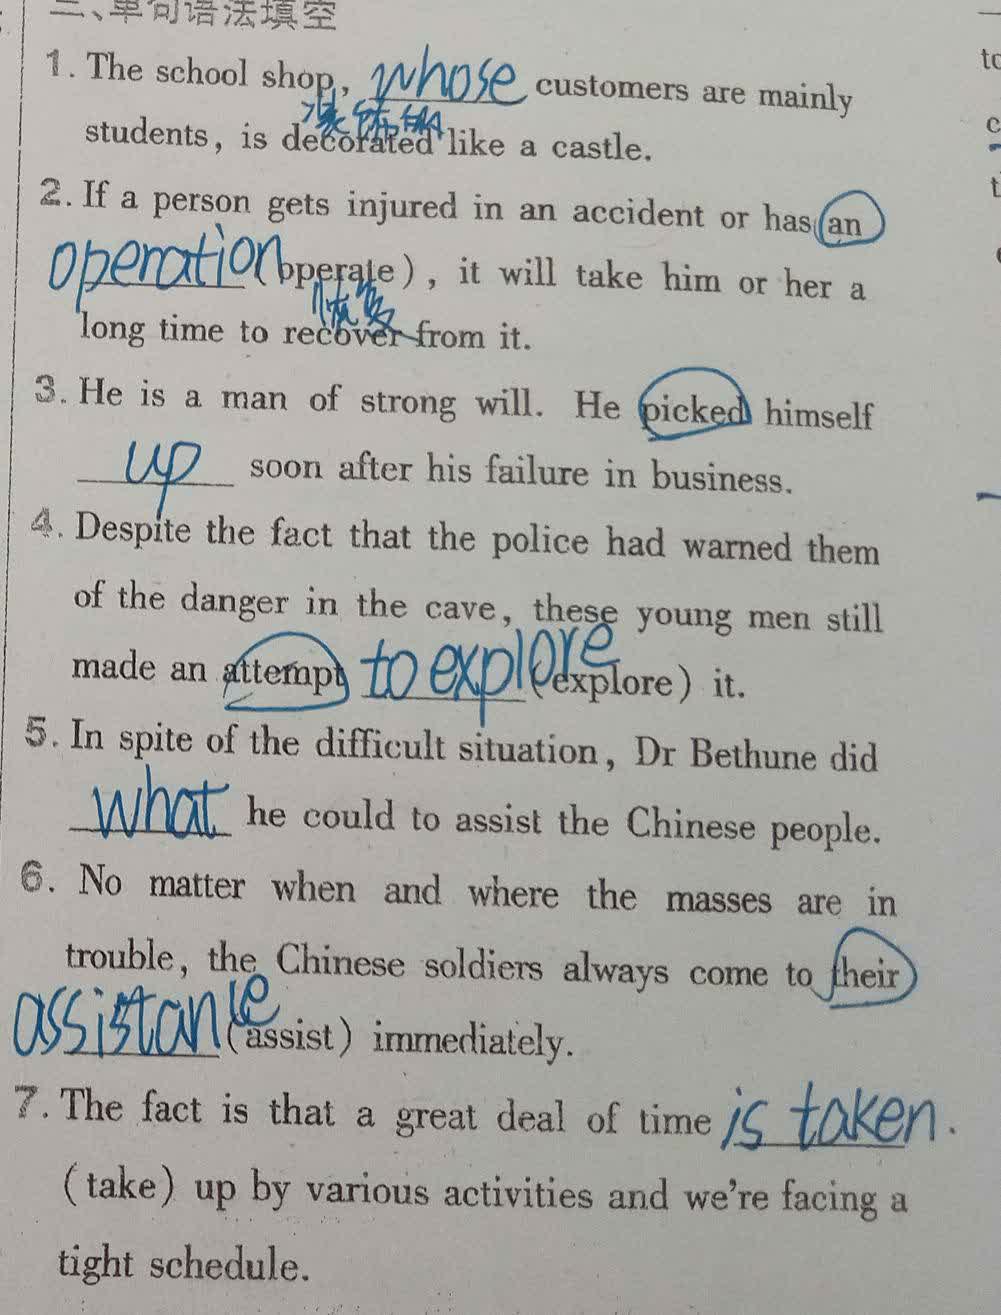 二、单句语法填空
1. The school shop, whose customers are mainly
装饰
students, is decorated like a castle.
2. If a person gets injured in an accident or has an
operation (operate), it will take him or her a
恢复
long time to recover from it.
3. He is a man of strong will. He picked himself
up soon after his failure in business.
4. Despite the fact that the police had warned them
of the danger in the cave, these young men still
made an attempt to explore (explore) it.
5. In spite of the difficult situation, Dr Bethune did
what he could to assist the Chinese people.
6. No matter when and where the masses are in
trouble, the Chinese soldiers always come to their
assistance (assist) immediately.
7. The fact is that a great deal of time is taken.
(take) up by various activities and we're facing a
tight schedule.